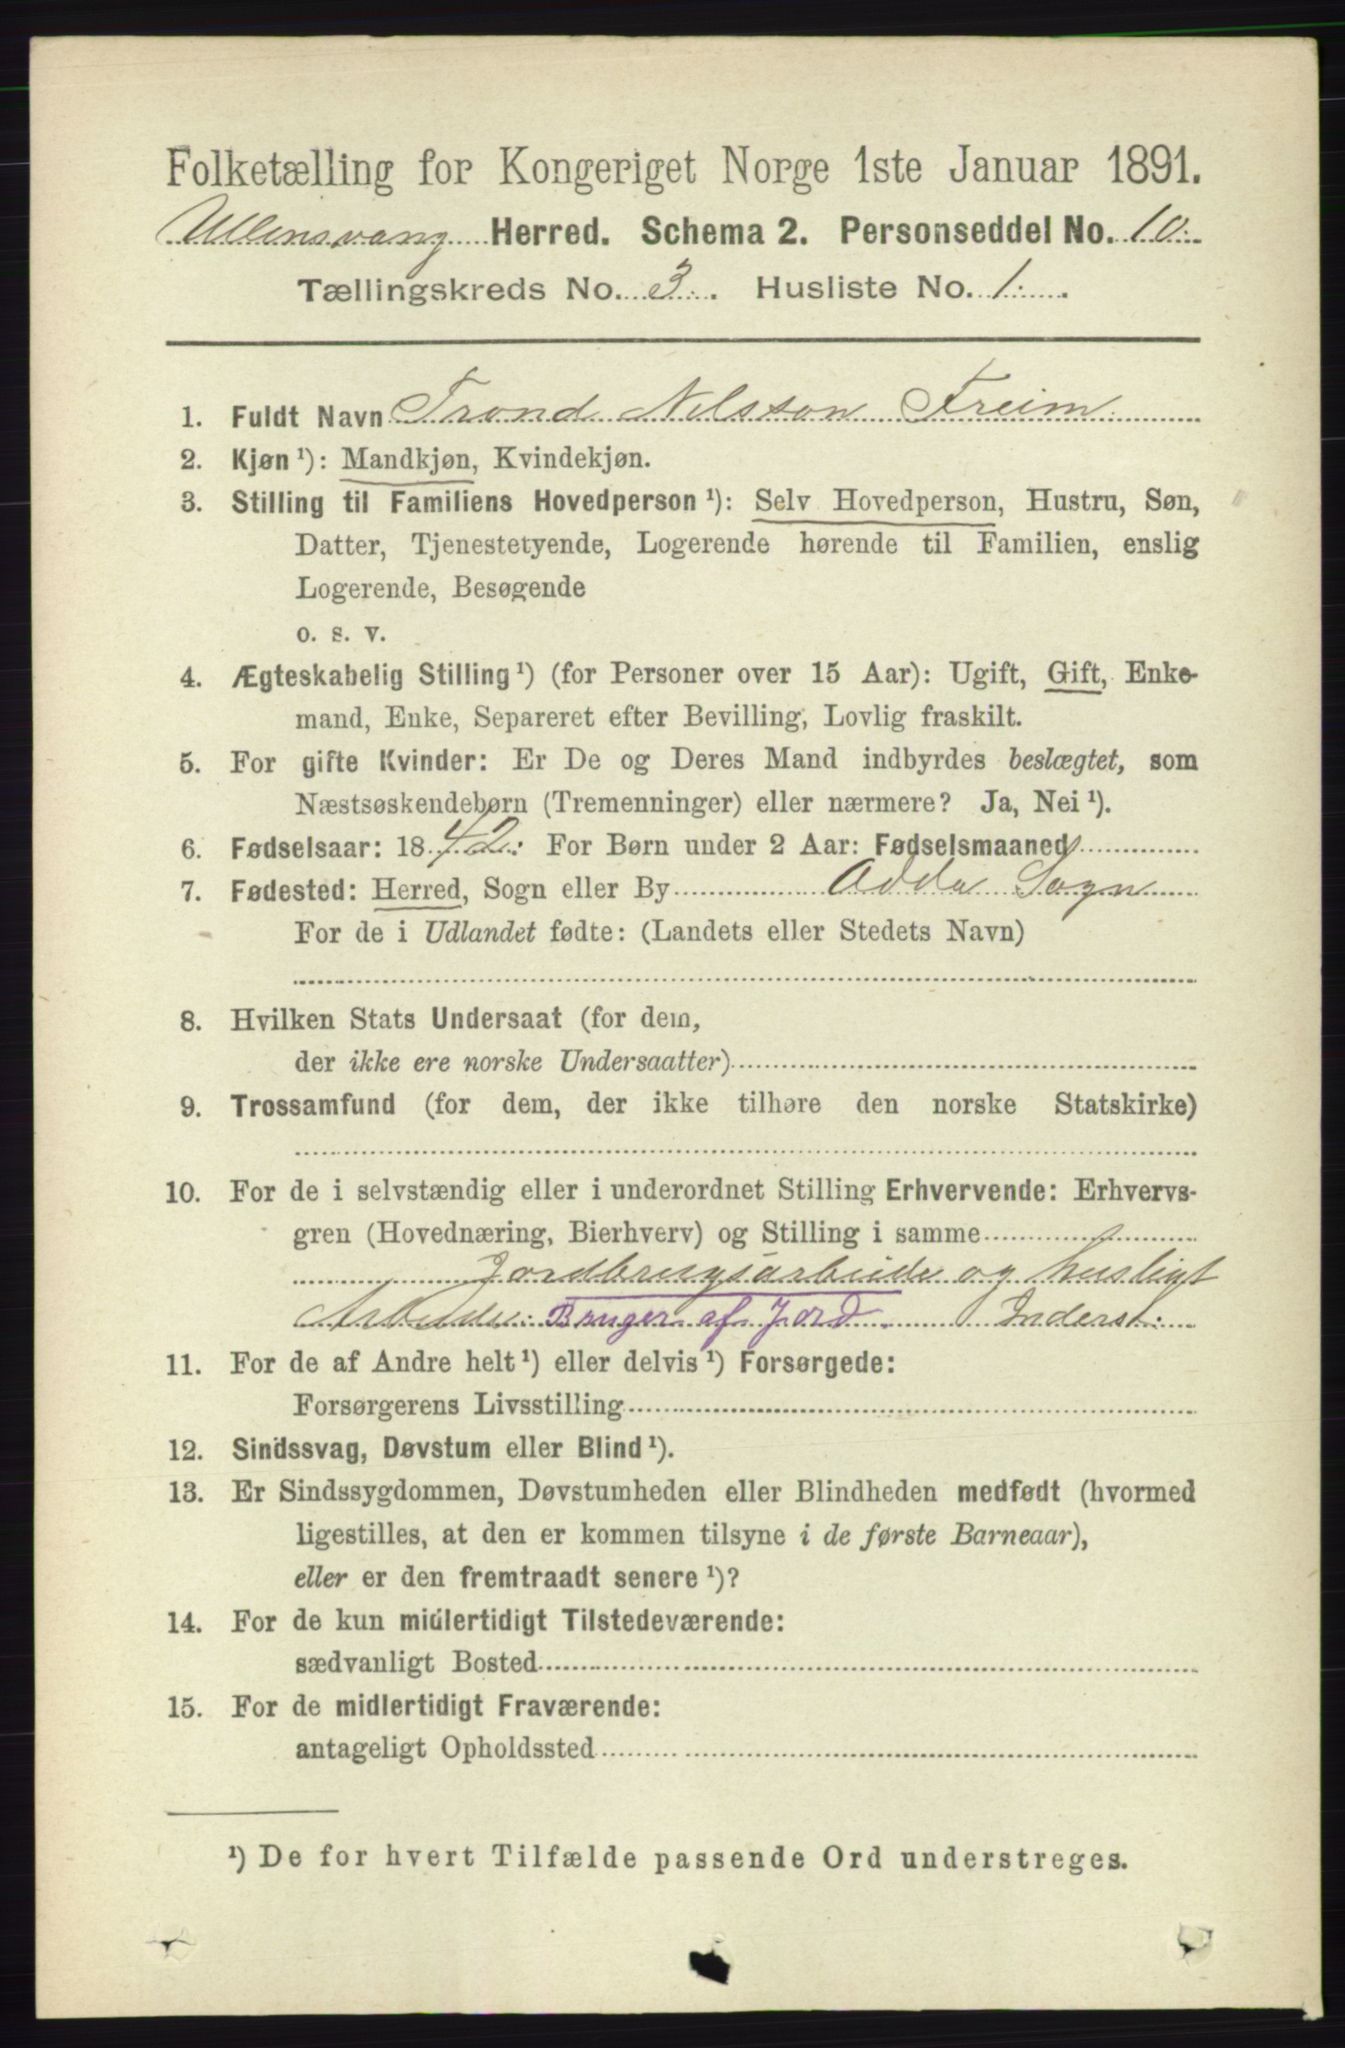 Folketælling for Kongeriget Norge 1ste Januar 1891.
Ullensvang Herred. Schema 2. Personseddel No. 10.
Tællingskreds No. 3. Husliste No. 1.
1. Fuldt Navn Trond Nilsson Freim.
2. Kjøn ¹): Mandkjøn, Kvindekjøn.
3. Stilling til Familiens Hovedperson ¹): Selv Hovedperson, Hustru, Søn,
Datter, Tjenestetyende, Logerende hørende til Familien, enslig
Logerende, Besøgende
o. s. v.
4. Ægteskabelig Stilling ¹) (for Personer over 15 Aar): Ugift, Gift, Enke-
mand, Enke, Separeret efter Bevilling, Lovlig fraskilt.
5. For gifte Kvinder: Er De og Deres Mand indbyrdes beslægtet, som
Næstsøskendebørn (Tremenninger) eller nærmere? Ja, Nei ¹).
6. Fødselsaar: 1842. For Børn under 2 Aar: Fødselsmaaned
7. Fødested: Herred, Sogn eller By Odda Sogn
For de i Udlandet fødte: (Landets eller Stedets Navn)
8. Hvilken Stats Undersaat (for dem,
der ikke ere norske Undersaatter)
9. Trossamfund (for dem, der ikke tilhøre den norske Statskirke)
10. For de i selvstændig eller i underordnet Stilling Erhvervende: Erhvervs-
gren (Hovednæring, Bierhverv) og Stilling i samme
Jordbrugsarbeide og husligt
Arbeide. Bruger af Jord. Inderst.
11. For de af Andre helt ¹) eller delvis ¹) Forsørgede:
Forsørgerens Livsstilling
12. Sindssvag, Døvstum eller Blind ¹).
13. Er Sindssygdommen, Døvstumheden eller Blindheden medfødt (hvormed
ligestilles, at den er kommen tilsyne i de første Barneaar),
eller er den fremtraadt senere ¹)?
14. For de kun midlertidigt Tilstedeværende:
sædvanligt Bosted
15. For de midlertidigt Fraværende:
antageligt Opholdssted
¹) De for hvert Tilfælde passende Ord understreges.